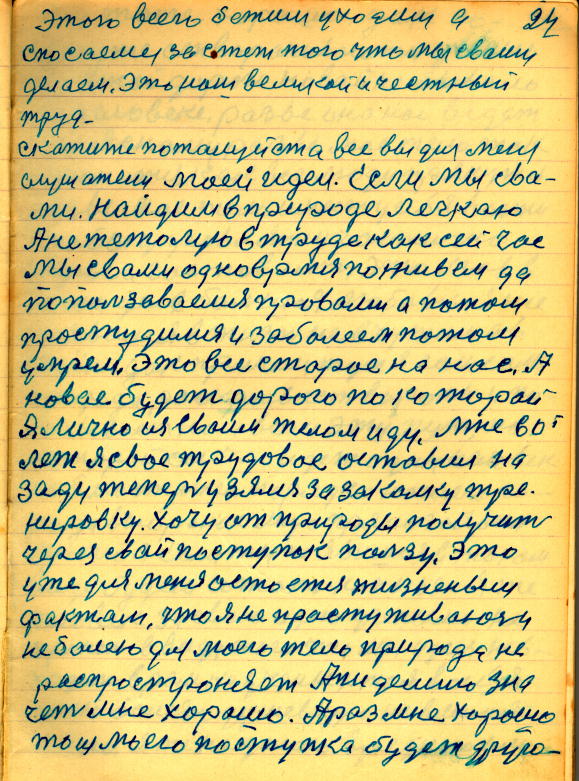 Этого всего бежим уходим а 24
спосаемся за счет того что мы свами
делаем. Это наш великой и честный
труд-
скажите пожалуйста все вы для меня
слушатели моей идеи. Если мы сва-
ми. найдим в природе легкаю
А не тежолую в труде как сей час
мы свами одно время поживем да
попользаваемся провами а потом
простудимся и заболеем потом
умрем. Это все старое на нас. А
новае будет дорого по которай
Я лично из своим телом иду. мне 60
лет я свое трудовое оставил на
зади теперь узялся за закалку тре-
нировку. хочу от природы получить
через свай поступок ползу. Это
уже для меня остается жизненым
фактам, что я не прастуживаюсь и
не болею для моего тела природа не
распространяет Апидемию зна
чет мне хорошо. А раз мне хорошо
то из моего поступка будет друго-